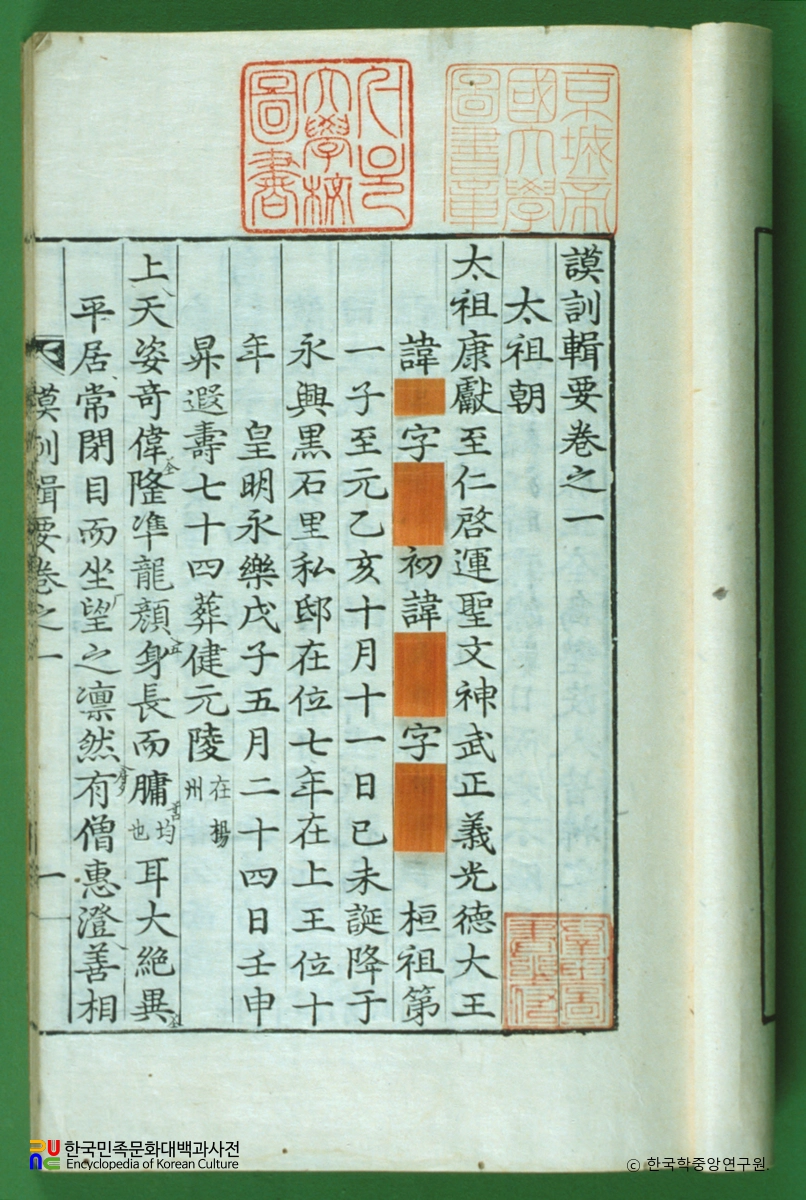 謨訓輯要卷之一
太祖朝
太祖康獻至仁啓運聖文神武正義光德大王
諱 字 初諱 字 桓祖第
一子至元乙亥十月十一日己未誕降于
永興黑石里私邸在位七年在上王位十
年 皇明永樂戊子五月二十四日壬申
昇遐壽七十四葬健元陵在楊州
上天姿奇偉隆準龍顔身長而膅均也耳大絶異
平居常閉目而坐望之凛然有僧惠澄善相
謨訓輯要卷之一 一
京城帝國大學圖書章
서울大學校圖書
한국민족문화대백과사전
Encyclopedia of Korean Culture
© 한국학중앙연구원